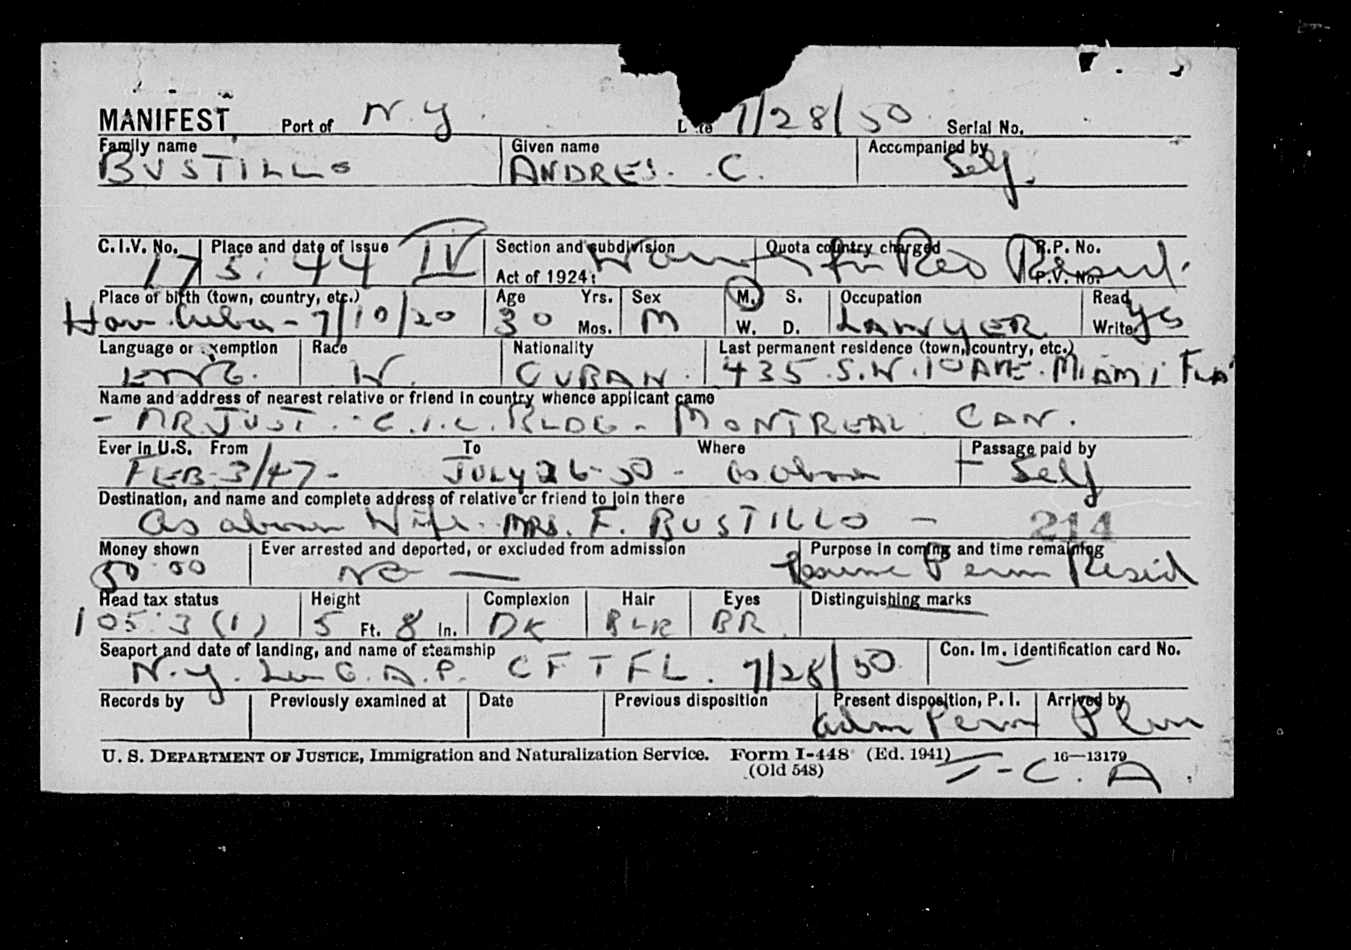 MANIFEST Port of N.Y. 7/28/50 Serial No.
Family name Given name Accompanied by
BUSTILLO ANDRES. C. Self.
C.I.V. No. Place and date of issue Section and subdivision Quota country charged R.P. No.
175.44 IV Act of 1924: P.V. No.
Place of birth (town, country, etc.) Age Yrs. Sex M. S. Occupation Read
Hav. Cuba - 7/10/20 30 Mos. M W. D. LAWYER Write Yes
Language or exemption Race Nationality Last permanent residence (town, country, etc.)
ENG. W. CUBAN. 435 S.W. 10 AVE. MIAMI FLA
Name and address of nearest relative or friend in country whence applicant came
- MR. JUST. - C.I.L. BLDG - MONTREAL CAN.
Ever in U.S. From To Where Passage paid by
FEB-3/47- JULY 26-50 - as above - Self
Destination, and name and complete address of relative or friend to join there
As above Wife. MRS. F. BUSTILLO - 214
Money shown Ever arrested and deported, or excluded from admission Purpose in coming and time remaining
50.00 NO — Resume Perm Resid
Head tax status Height Complexion Hair Eyes Distinguishing marks
105.3(1) 5 Ft. 8 In. DK BLK BR.
Seaport and date of landing, and name of steamship Con. Im. Identification card No.
N.Y. LaG. A.P. CFTFL. 7/28/50
Records by Previously examined at Date Previous disposition Present disposition, P. I. Arrived by
adm Perm Plane
U. S. DEPARTMENT OF JUSTICE, Immigration and Naturalization Service. Form I-448 (Ed. 1941) 16—13179
(Old 548) T-C.A.